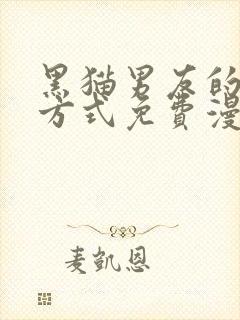 黑猫男友的
方式免費漫
麦凯恩